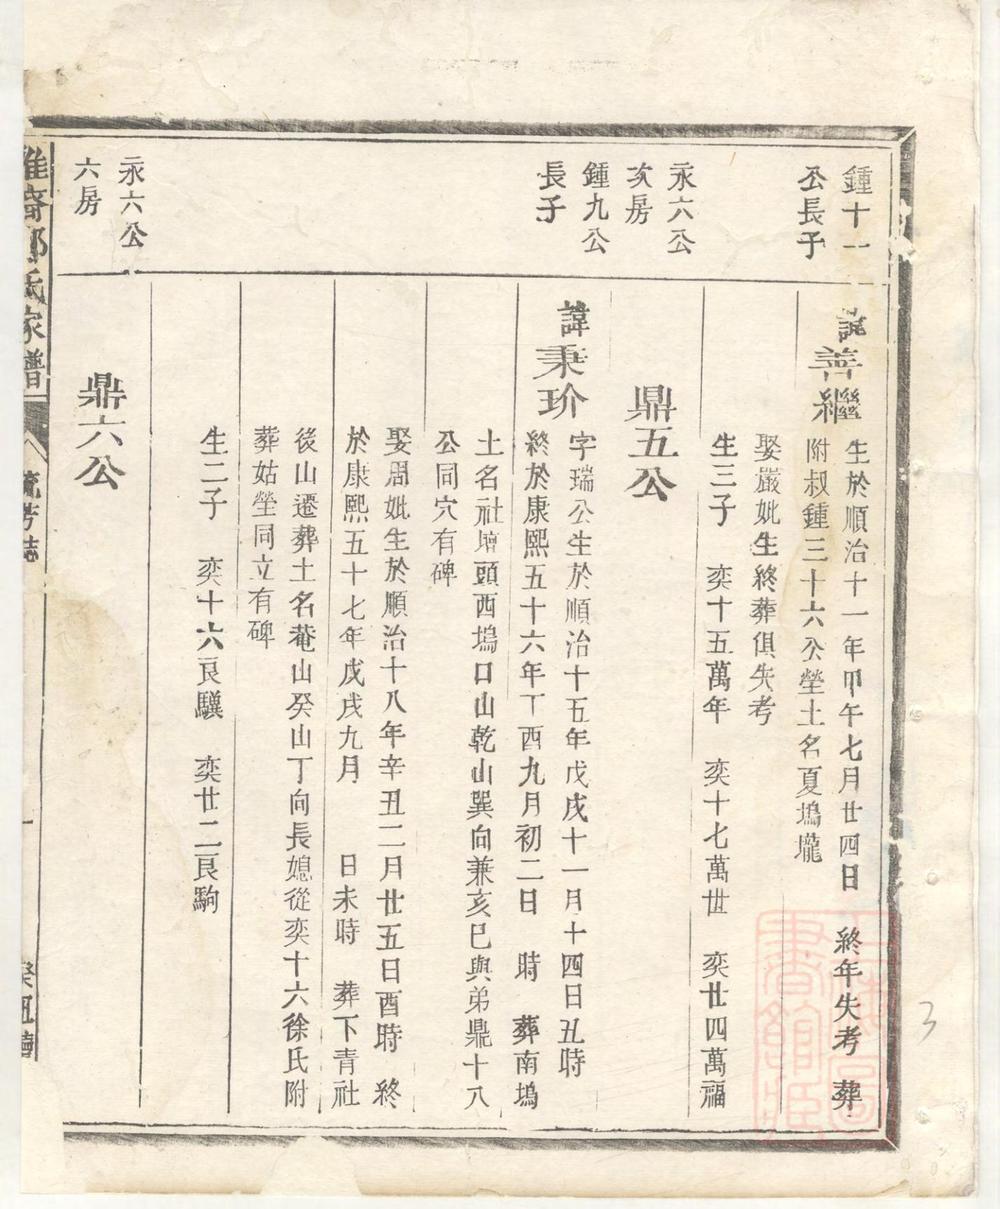 鍾十一
公長子
諱善繼
生於順治十一年甲午七月廿四日　終年失考　葬
附叔鍾三十六公塋土名夏塢壠
娶嚴妣生終葬俱失考
生三子　奕十五萬年　奕十七萬世　奕廿四萬福
永六公
次房
鼎五公
鍾九公
長子
諱秉玠
字瑞公生於順治十五年戊戌十一月十四日丑時
終於康熙五十六年丁酉九月初二日　時　葬南塢
土名社壇頭西塢口山乾山巽向兼亥巳與弟鼎十八
公同穴有碑
娶周妣生於順治十八年辛丑二月廿五日酉時　終
於康熙五十七年戊戌九月　日未時　葬下青社
後山遷葬土名菴山癸山丁向長媳從奕十六徐氏附
葬姑塋同立有碑
生二子　奕十六良驥　奕廿二良駒
永六公
六房
鼎六公
氏家譜
流芳誌